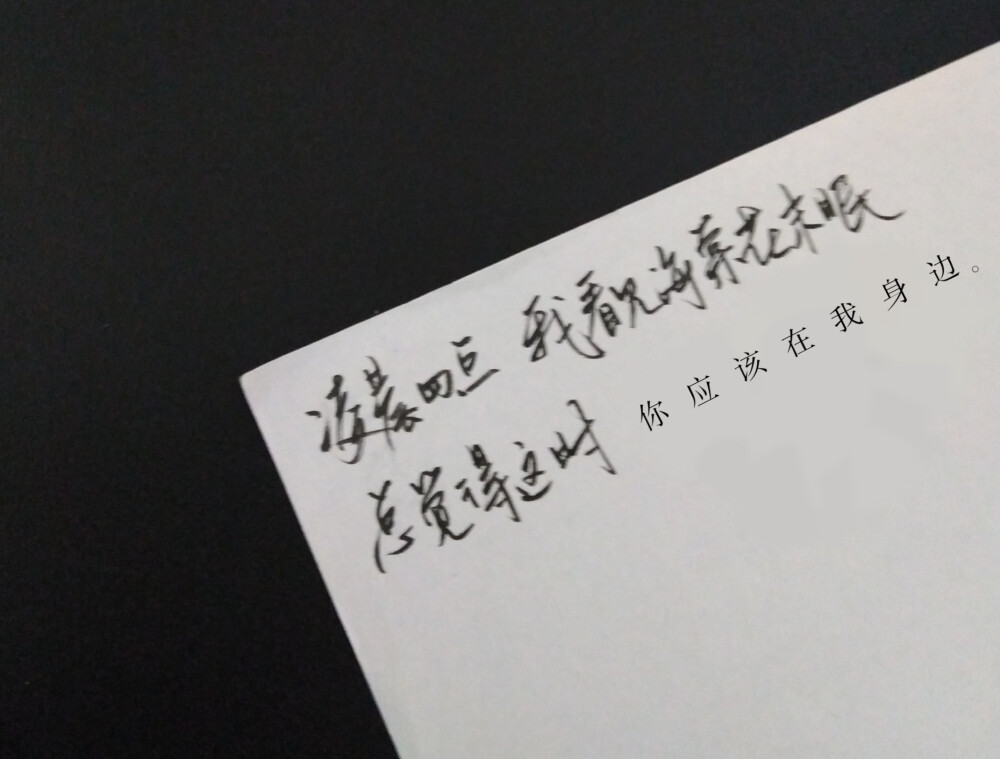 凌晨四点 我看见海棠花未眠
总觉得这时 你应该在我身边。